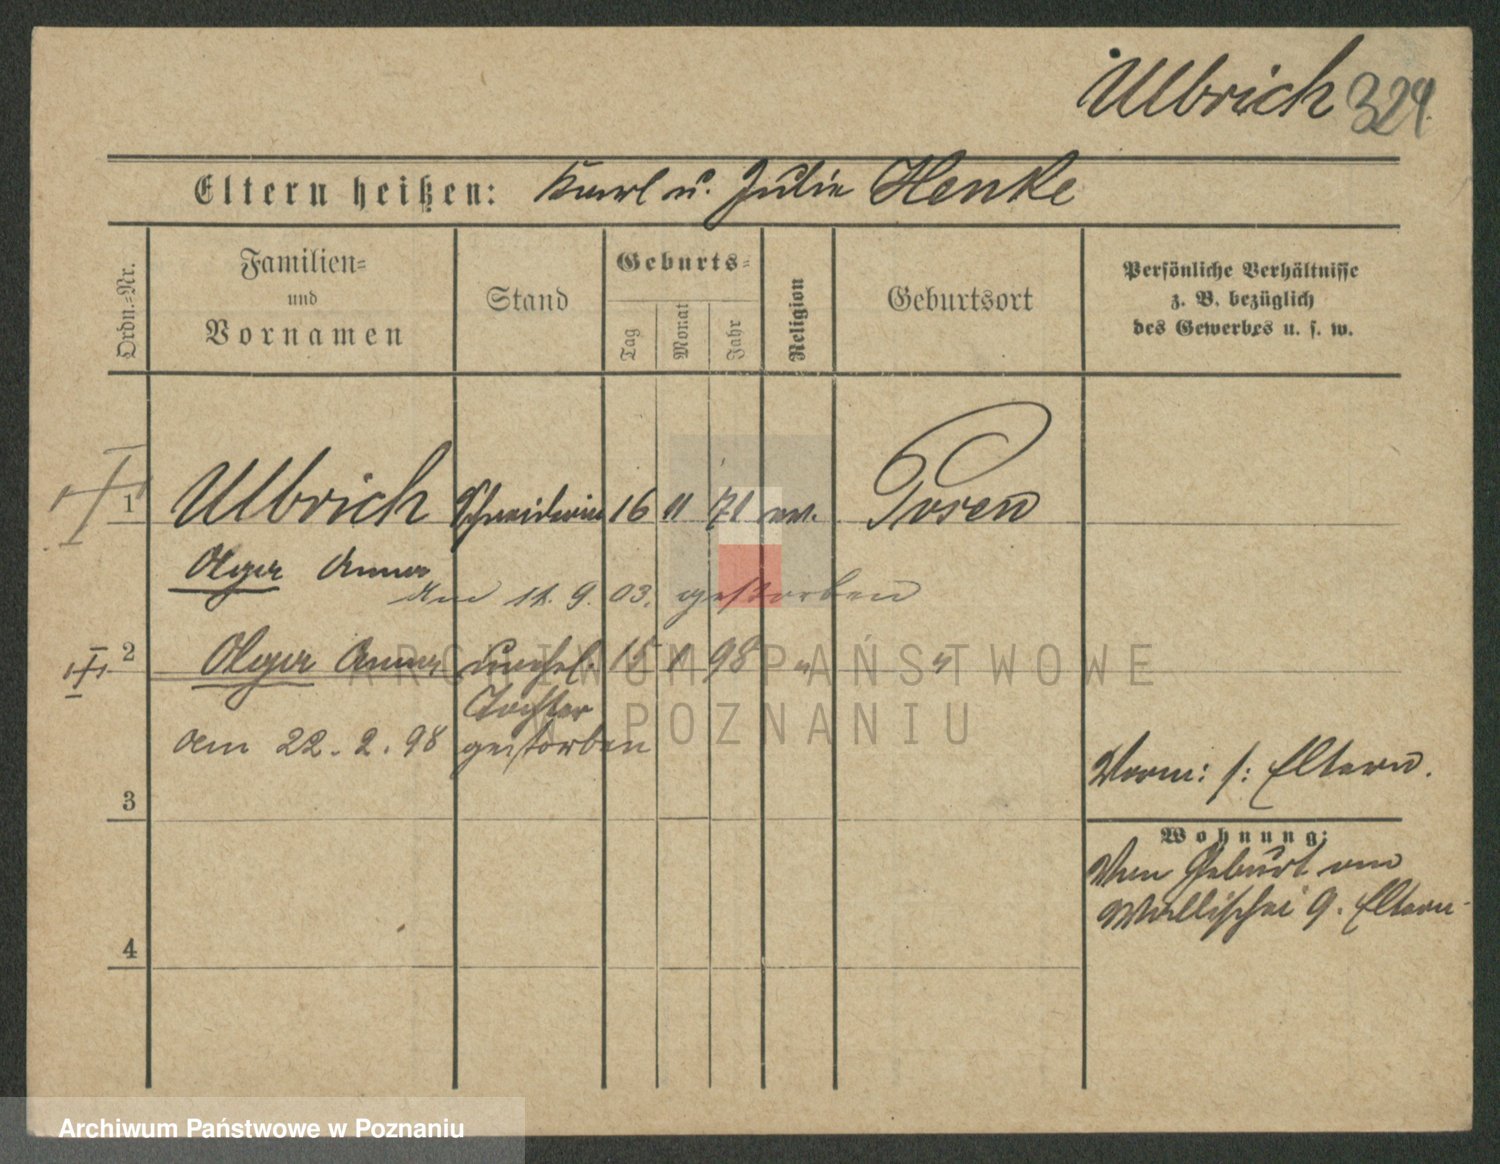 Ulbrich 329.
Eltern heißen: Karl u. Julie Henke
Ordn.-Nr.
Familien-
und
Vornamen
Stand
Geburts-
Tag
Monat
Jahr
Religion
Geburtsort
Persönliche Verhältnisse
z. B. bezüglich
des Gewerbes u. s. w.
1 Ulbrich Schneiderin 16 11 71 ev. Posen
Olga Anna
am 11. 9. 03. gestorben
2 Olga Anna unehel. 15 1 98 " "
Tochter
am 22. 2. 98 gestorben
ARCHIWUM PAŃSTWOWE
W POZNANIU
Vorm: s: Eltern.
3
Wohnung:
Von Geburt an
Wallischei 9. Eltern
4
Archiwum Państwowe w Poznaniu